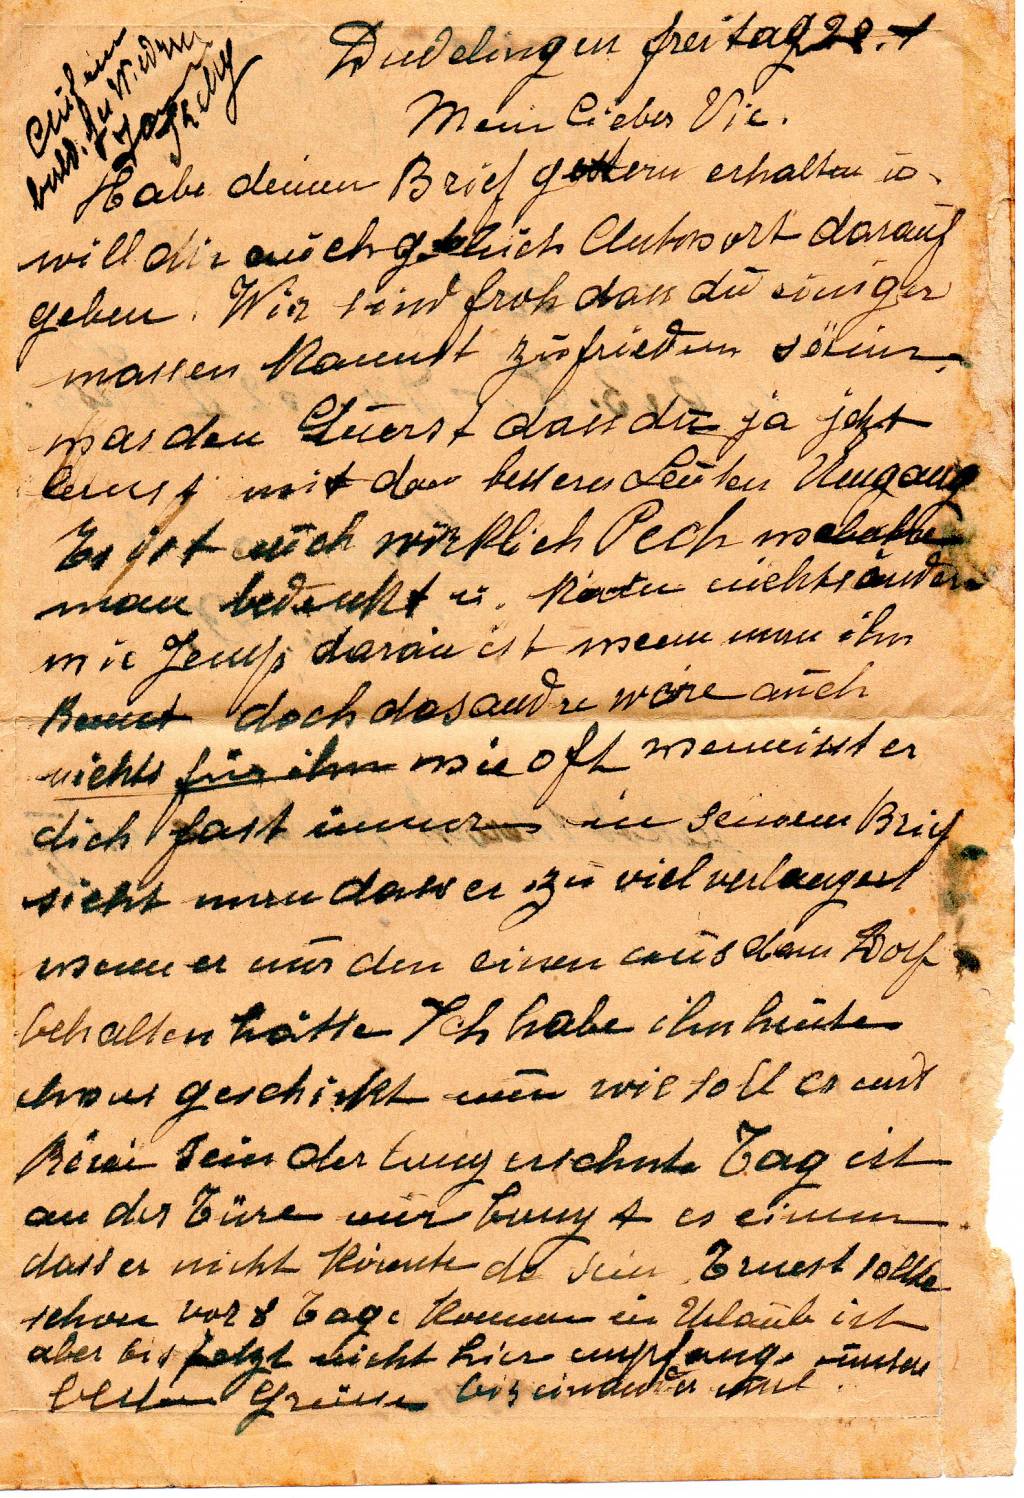 Auf ein
bald. zu Wiedern
Dudelingen freitag 28.
Mein lieber Vic.
Habe deinen Brief gestern erhalten u.
will dir auch gleich Antwort darauf
geben. Wir sind froh dass du einiger
massen kannst zufrieden
dass du ja jetzt
mit den bessern Leuten Umgang
Es ist auch wirklich Pech
man bedenkt u. kann nichts ändern
wie Jemp daran ist wenn man ihm
doch das andre wäre auch
nichts für ihn wie oft wenn er
dich fast immer in seinem Brief
sieht man dass er zu viel verlangert
wenn er nur den einen aus dem Dorf
behalten hätte Ich habe ihm heute
etwas geschikt nun wie soll es mit
sein der lang ersehnte Tag ist
an der Türe nur bangt es einem
dass er nicht könnte da sein. Ernest sollte
schon vor 8 Tage kommen in Urlaub ist
aber bis jetzt nicht hier empfange unsere
besten Grüsse bis einander mal.